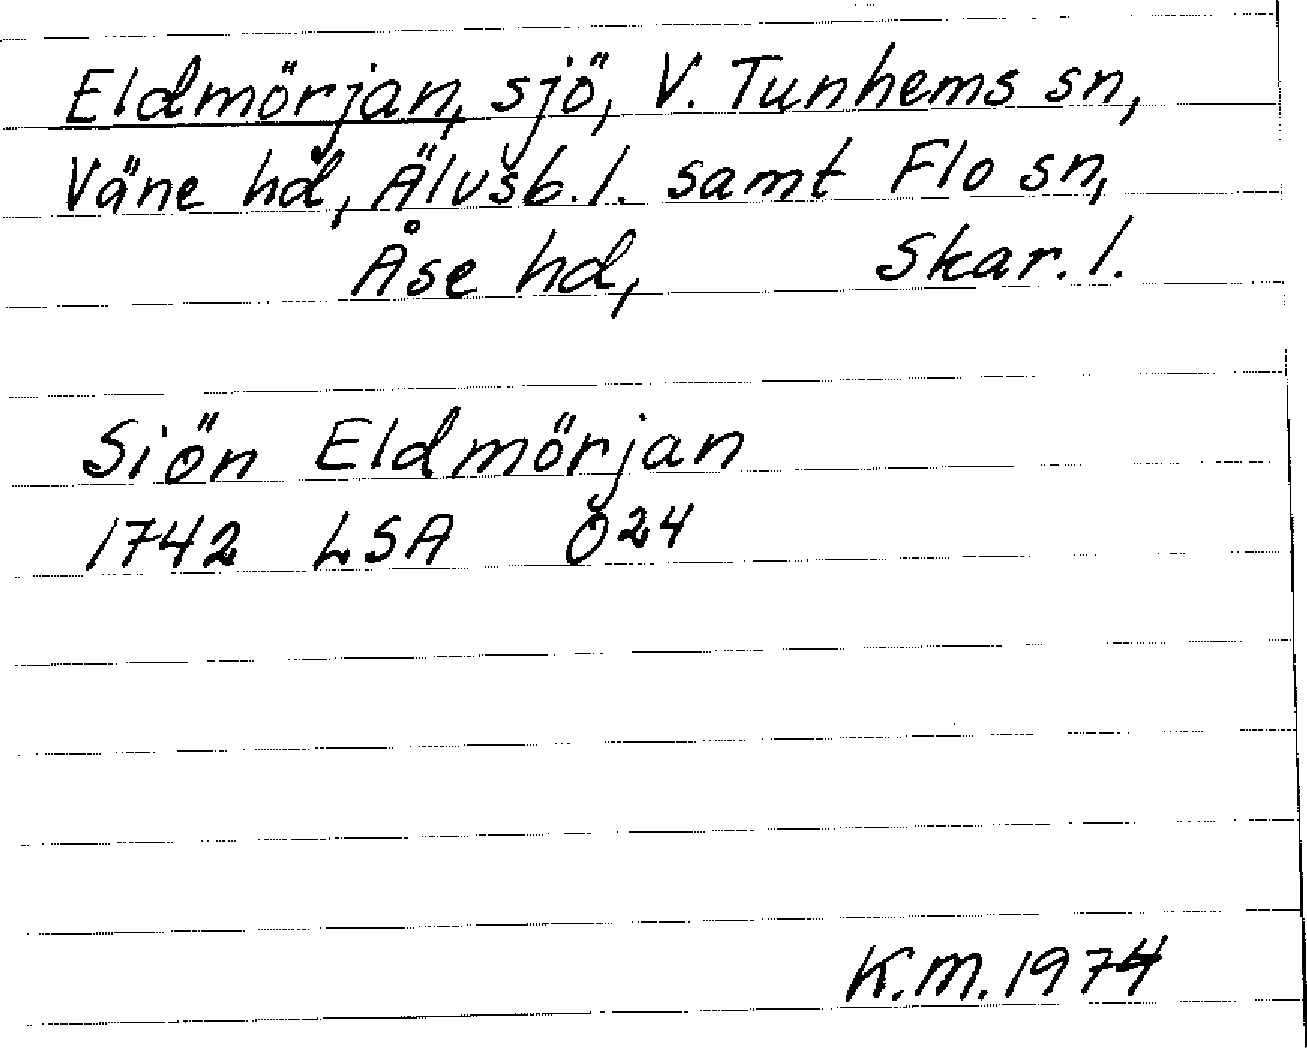 Eldmörjan, sjö, V. Tunhems sn,
Väne hd, Älvsb. l. samt Flo sn,
Åse hd, Skar. l.
Siön Eldmörjan
1742 LSA O24
K.M. 1974